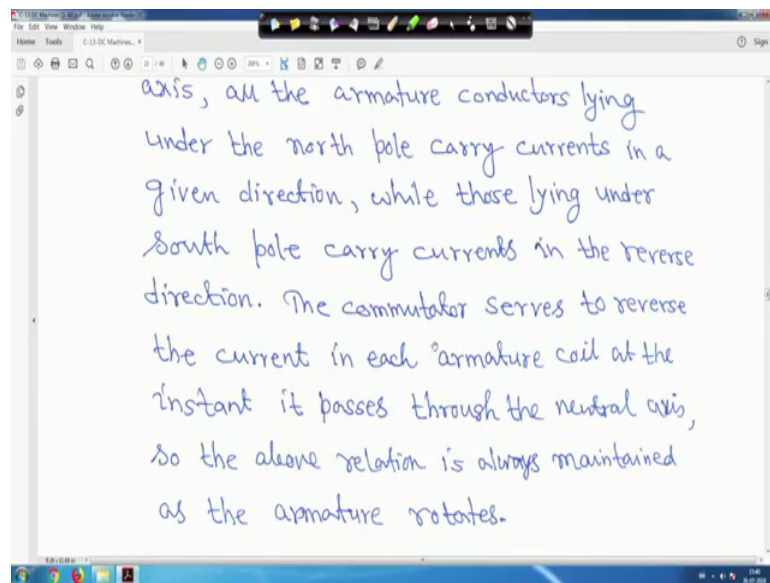 File Edit View Window Help
Home Tools C-13-DC Machines... × Sign
axis, all the armature conductors lying
under the north pole carry currents in a
given direction, while those lying under
South pole carry currents in the reverse
direction. The commutator serves to reverse
the current in each armature coil at the
instant it passes through the neutral axis,
so the above relation is always maintained
as the armature rotates.